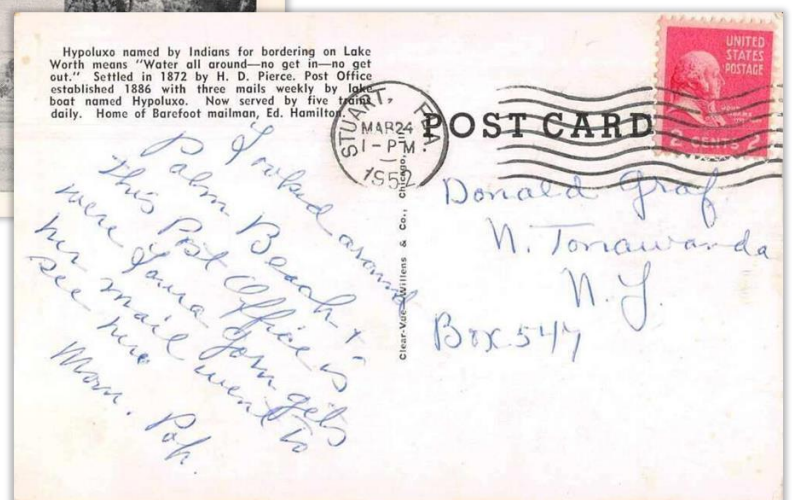 Hypoluxo named by Indians for bordering on Lake
Worth means "Water all around—no get in—no get
out." Settled in 1872 by H. D. Pierce. Post Office
established 1886 with three mails weekly by lake
boat named Hypoluxo. Now served by five trains
daily. Home of Barefoot mailman, Ed. Hamilton.
STUART, FLA
MAR 24
1-PM
1952
POST CARD
UNITED
STATES
POSTAGE
2 CENTS 2
Clear-Vue—Willens & Co., Chicago,
Looked around
Palm Beach &
this Post Office is
were Laura gets
her mail went to
see her
Mom. Pop.
Donald Graf
N. Tonawanda
N.Y.
Box 547